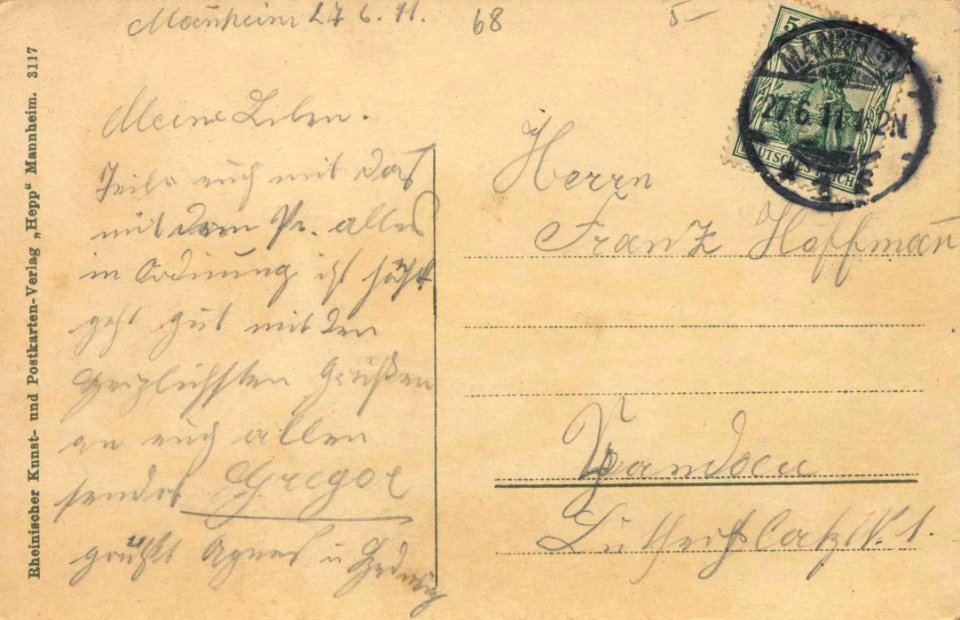 Mannheim 27 6. 11.
68
5-
Meine Lieben.
Teile euch mit das
mit dem Pr. alles
in Ordnung ist
geht gut mit den
herzlichsten Grüßen
an euch allen
sendet Gregor
grüßt Agnes u Hedwig
Herrn
Franz Hoffman
Spandau
5
MANNHEIM
27.6.11.1-2N
DEUTSCHES REICH
Rheinischer Kunst- und Postkarten-Verlag „Hepp“ Mannheim. 3117